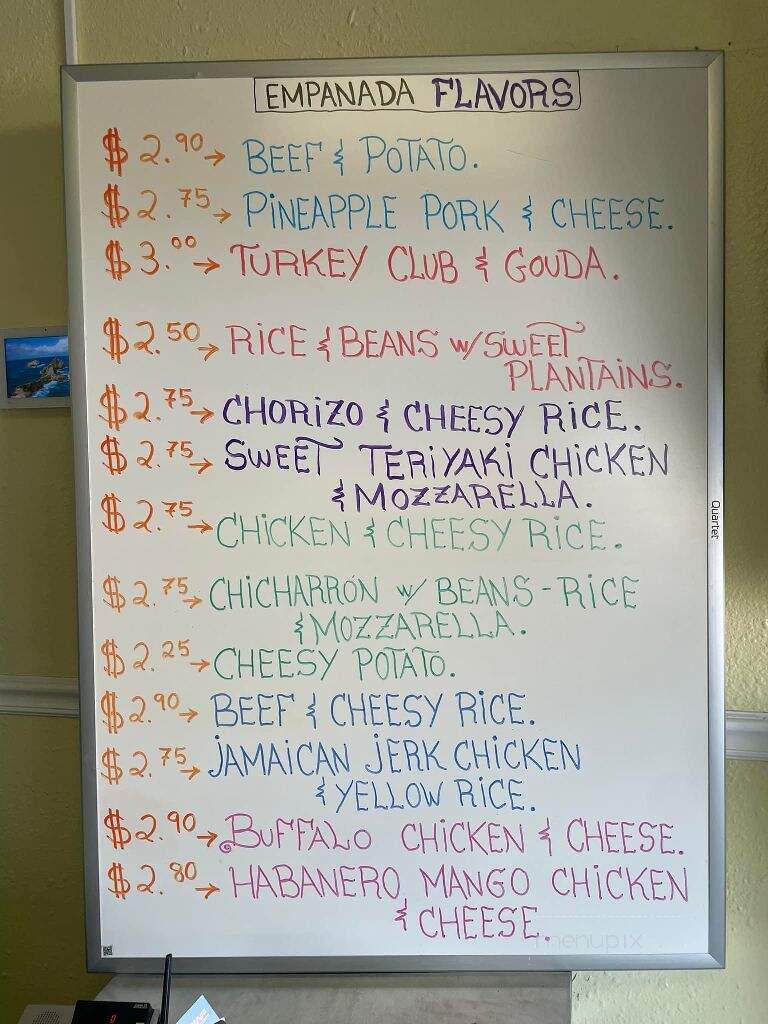 EMPANADA FLAVORS
$2.90→ BEEF & POTATO.
$2.75→ PINEAPPLE PORK & CHEESE.
$3.00→ TURKEY CLUB & GOUDA.
$2.50→ RICE & BEANS w/ SWEET
PLANTAINS.
$2.75→ CHORIZO & CHEESY RICE.
$2.75→ SWEET TERIYAKI CHICKEN
& MOZZARELLA.
$2.75→ CHICKEN & CHEESY RICE.
$2.75→ CHICHARRÓN w/ BEANS-RICE
& MOZZARELLA.
$2.25→ CHEESY POTATO.
$2.90→ BEEF & CHEESY RICE.
$2.75→ JAMAICAN JERK CHICKEN
& YELLOW RICE.
$2.90→ BUFFALO CHICKEN & CHEESE.
$2.80→ HABANERO MANGO CHICKEN
& CHEESE.
Quartet
menupix